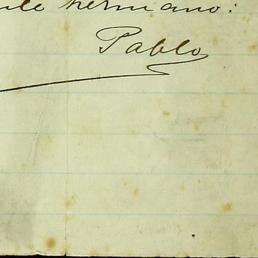 hermano:
Pablo